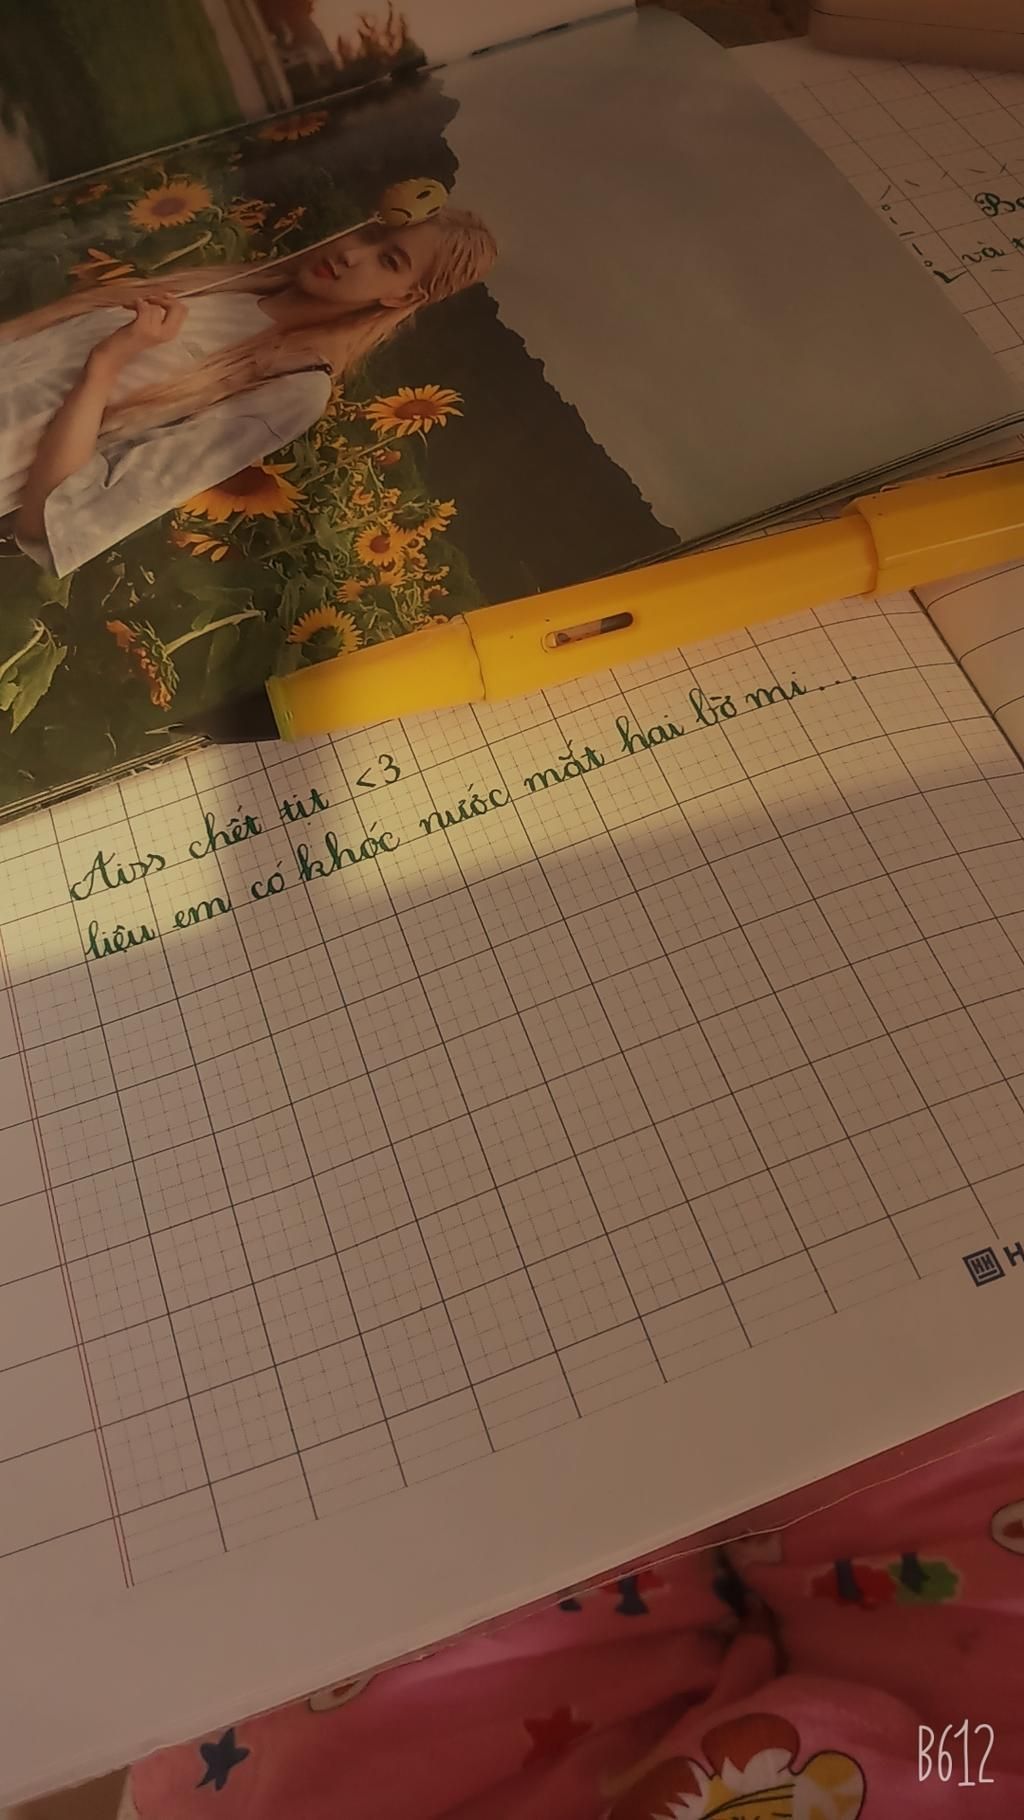 Aiss chết tịt <3
liệu em có khóc nước mắt hai bờ mi...
và
H
B612